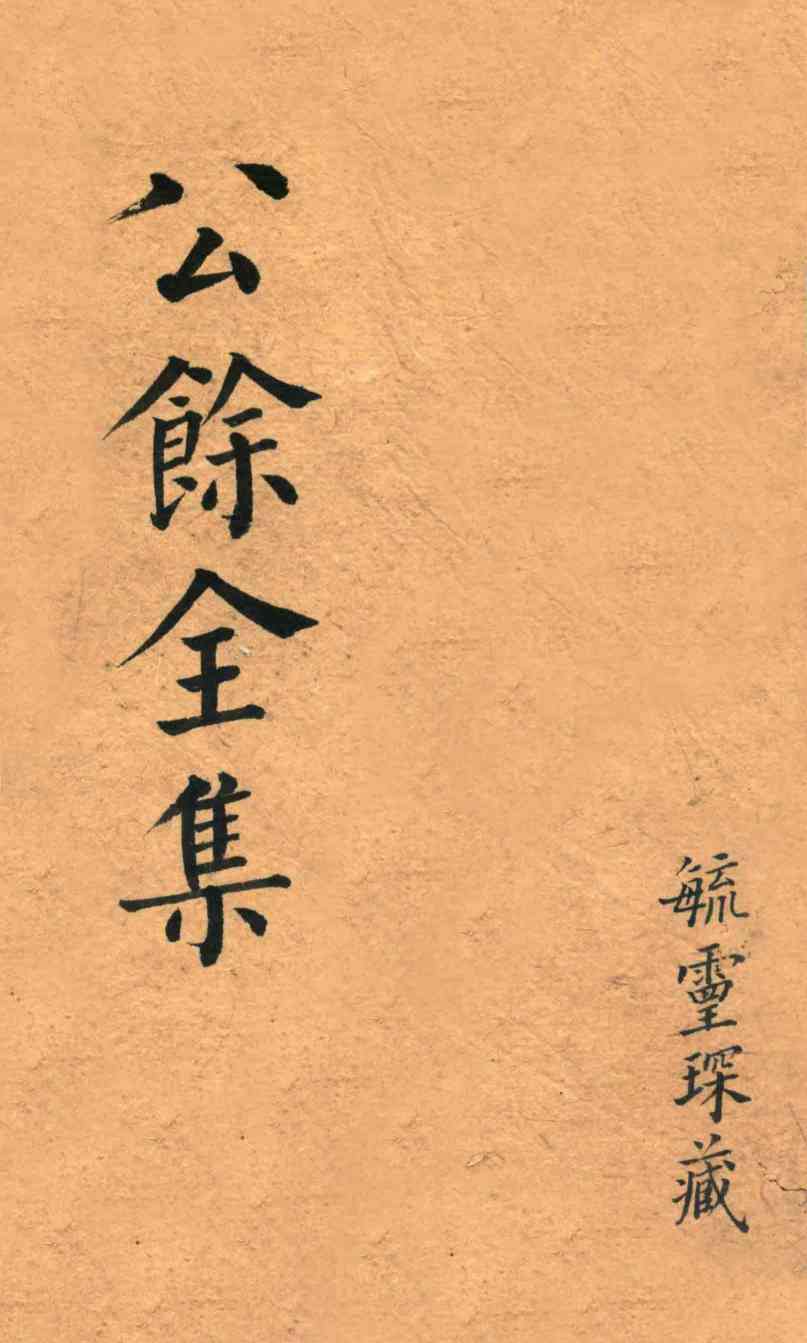 毓靈琛藏
公餘全集